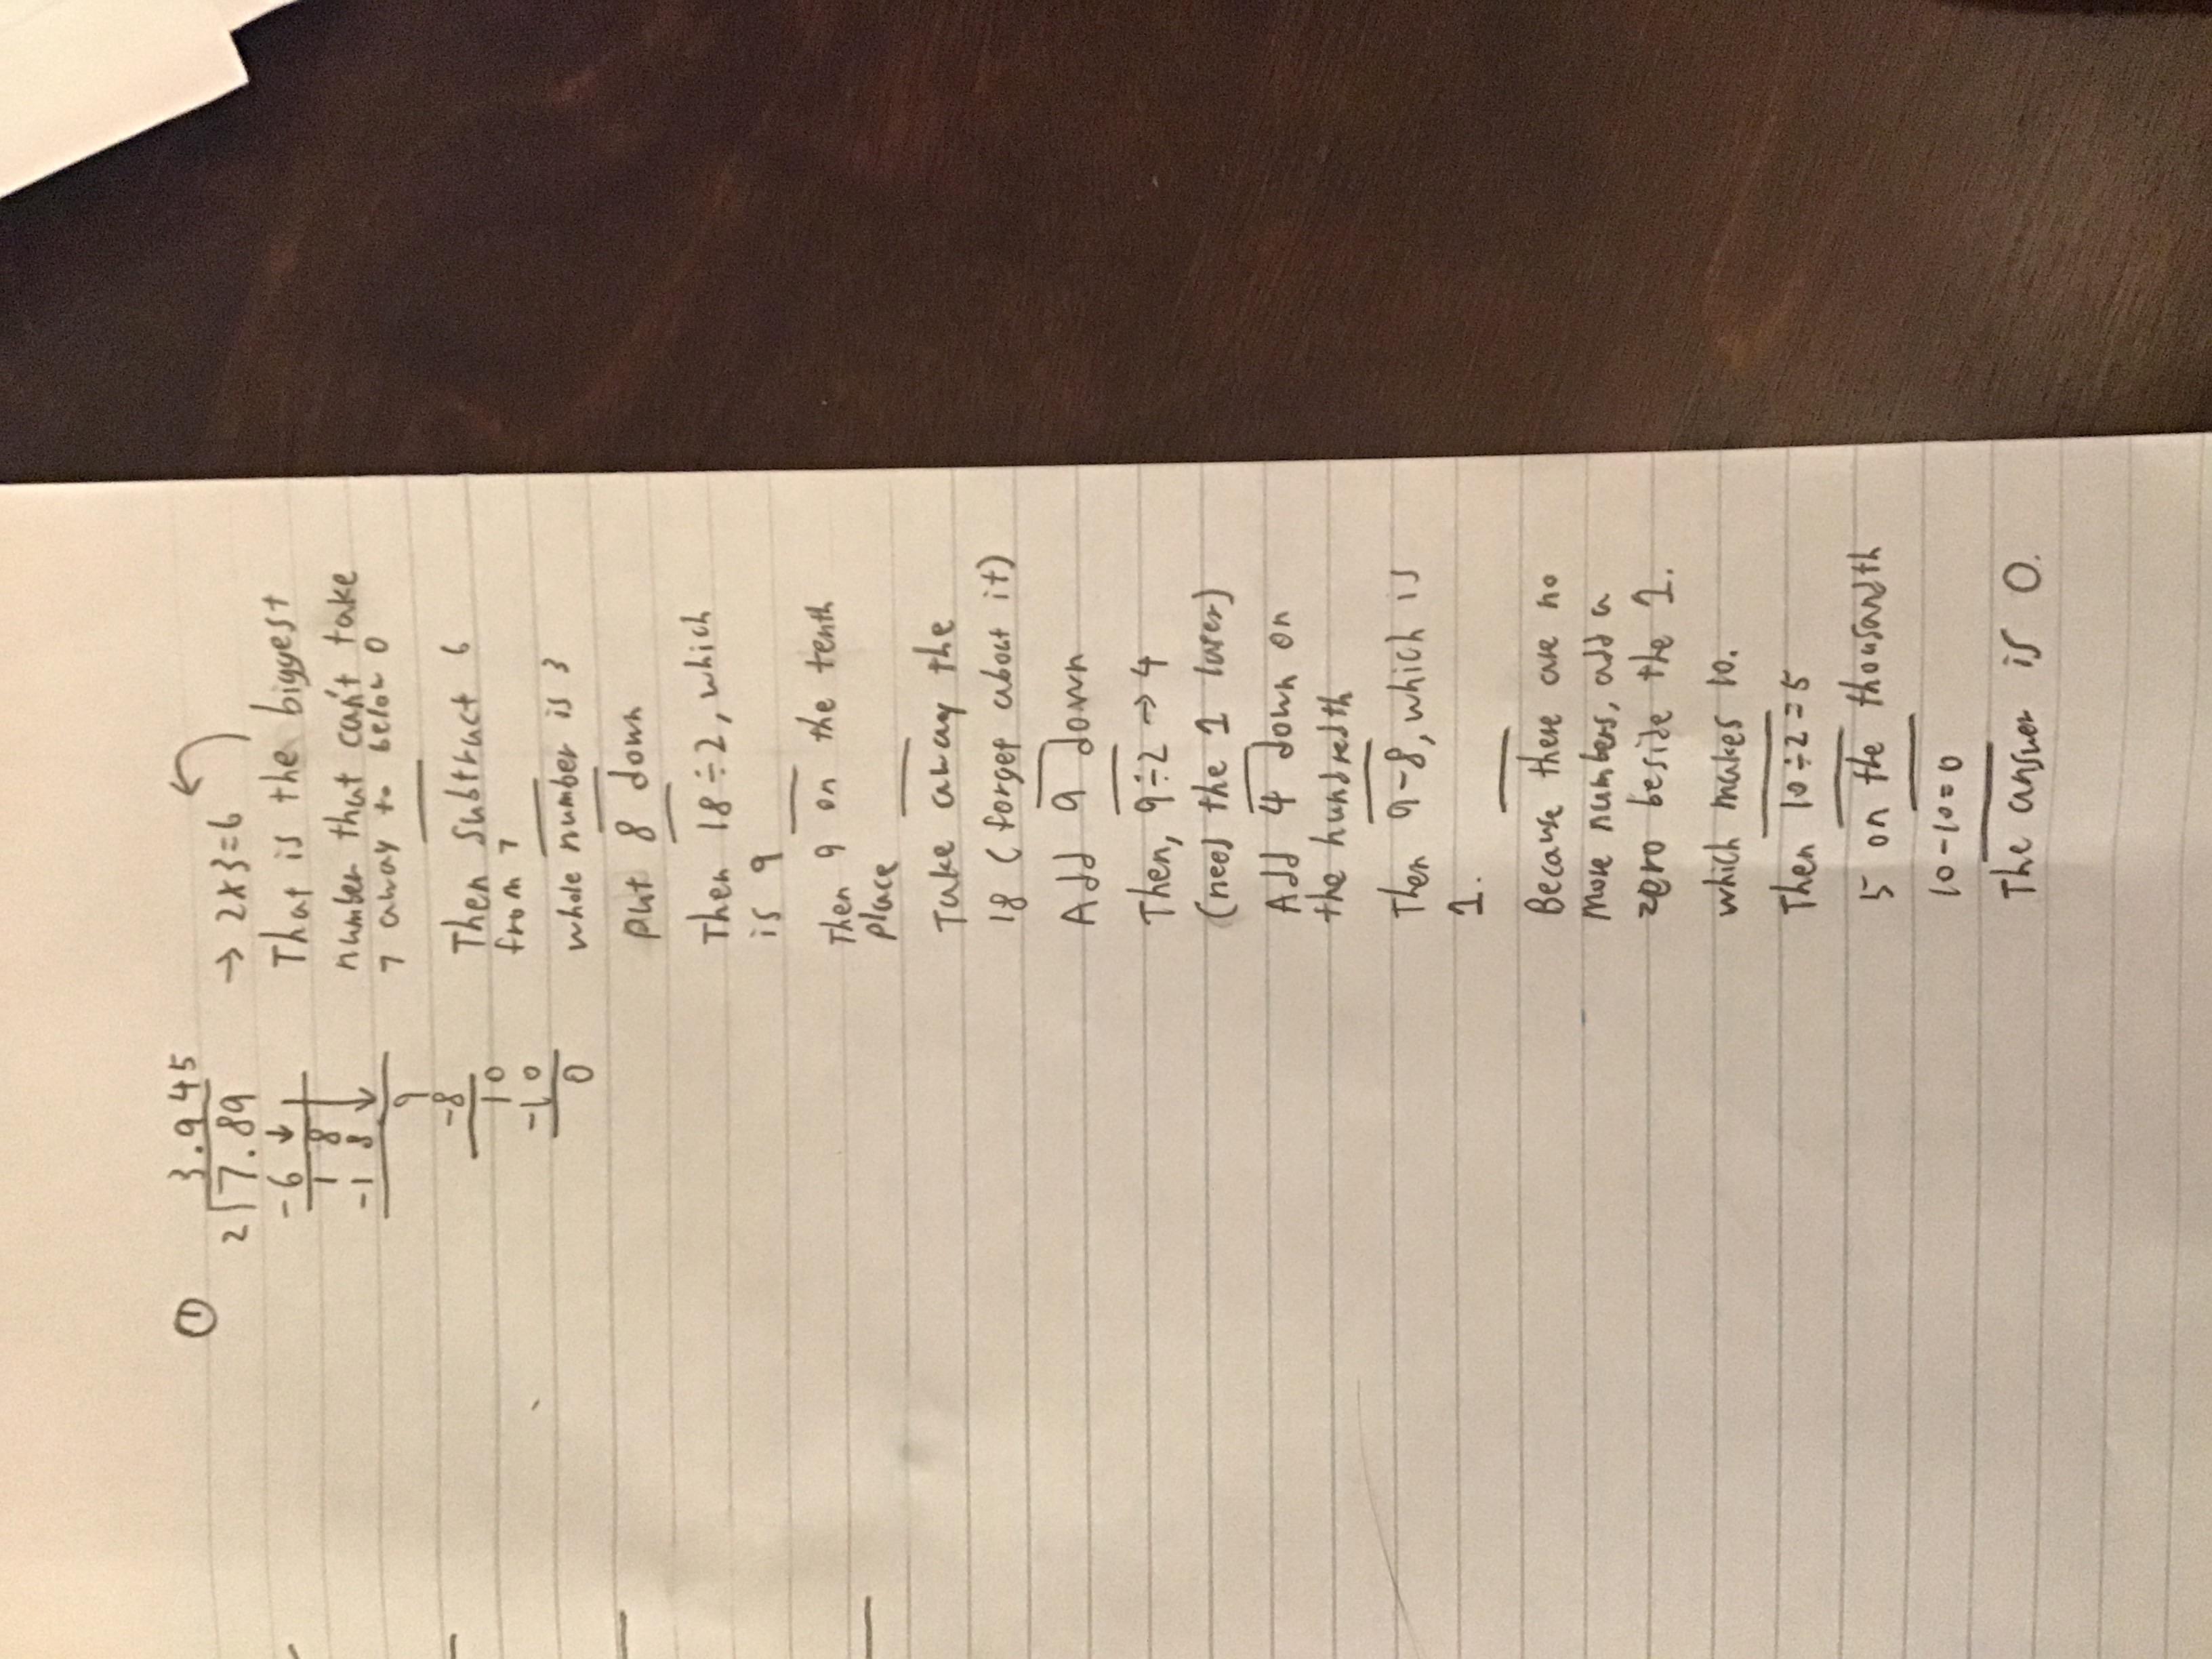 ①
3.945
2 7.89
-6
18
-18
9
-8
10
-10
0
→ 2x3=6
That is the biggest
number that can't take
7 away to below 0
Then Subtract 6
from 7
whole number is 3
put 8 down
Then 18÷2, which
is 9
Then 9 on the tenth
place
Take away the
18 (forget about it)
Add 9 down
Then, 9÷2→4
(need the 1 later)
Add 4 down on
the hundredth
Then 9-8, which is
1.
Because there are no
more numbers, add a
zero beside the 1.
which makes 10.
Then 10÷2=5
5 on the thousandth
10-10=0
The answer is 0.